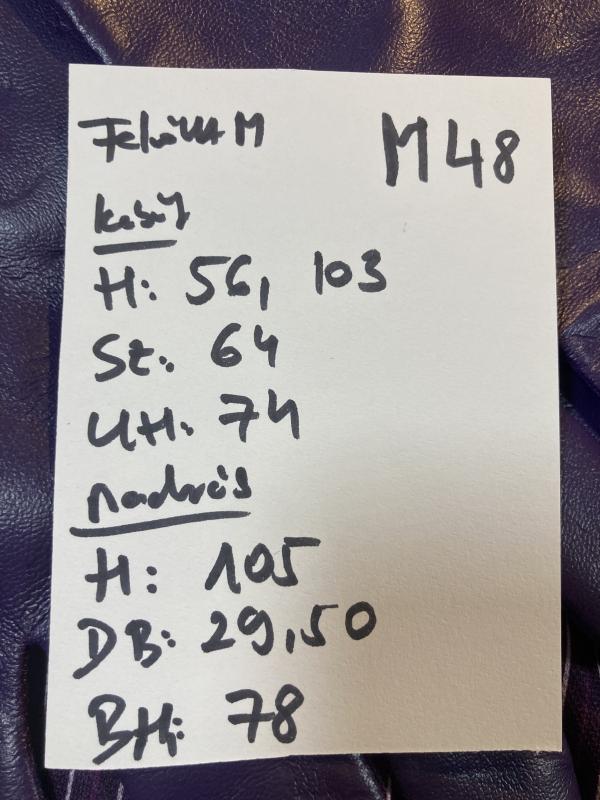 Felnőtt M M48
kabát
H: 56, 103
Sz: 64
UH: 74
nadrág
H: 105
DB: 29,50
BH: 78